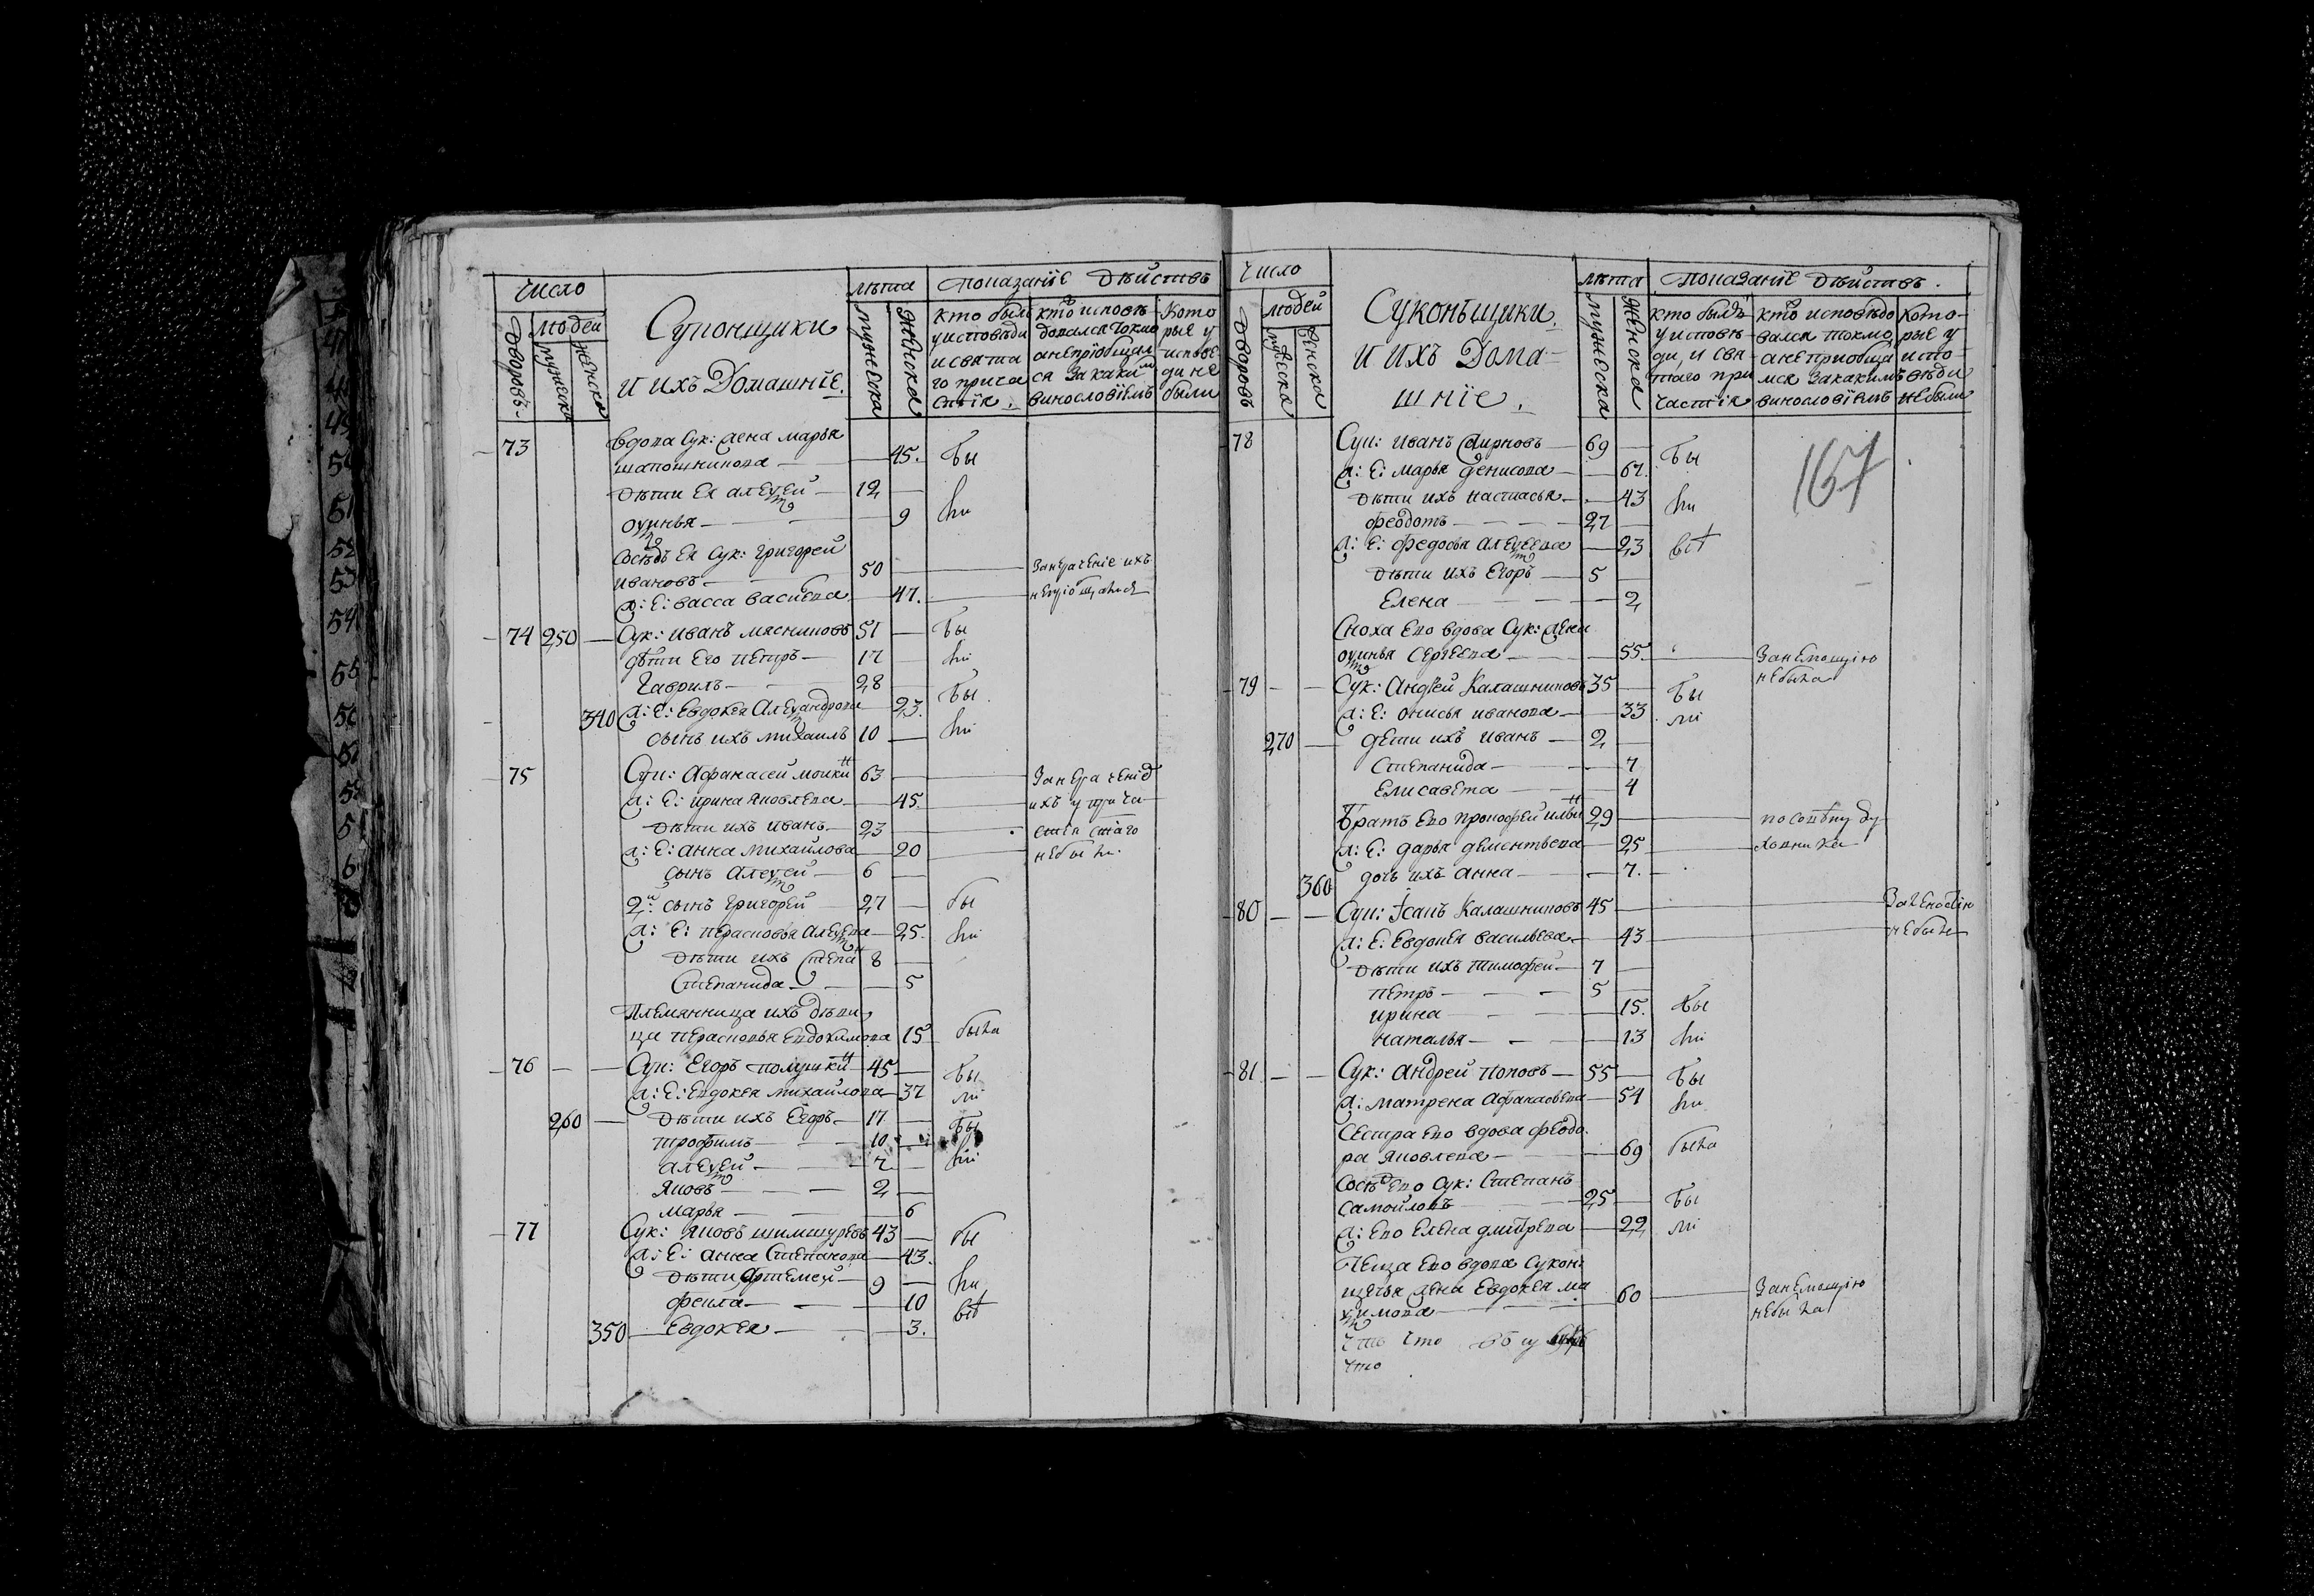 Число
Людей
Дворовъ
мужеска
женска
Суконщики
и ихъ Домашнїе.
Лѣта
мужеска
Женска
Показанїе Дѣйствъ
кто былъ
у исповѣди
и свята
го прича
стїя.
кто исповѣ
довался токмо
а непрїобщал
ся за каким
винословїемъ
Кото
рые у
исповѣ
ди не
были
73 вдова Сук: жена марья
шапошникова 45. Бы
дѣти Ея алеѯей 12
оѯинья 9 ли
Сосѣдъ Ея Сук: григорей
ивановъ 50
ж: Е: васса васиева 47.
74 250 Сук: иванъ мясниковъ 51 Бы
дѣти Его петръ 17 ли
Гаврилъ 28 Бы
340 ж: Е: Евдокея Алеѯандрова 23. ли
сынъ ихъ михаилъ 10
75 Сук: Афанасей 63
ж: Е: ирина яковлева 45
дѣти ихъ иванъ 23
ж: Е: анна михайлова 20 небыли
сынъ алеѯей 6
2й: сынъ григорей 27 бы
ж: Е: парасковья Алеѯева 25. ли
дѣти ихъ Степа 8
Степанида 5
Племянница ихъ дѣви
ца парасковья Евдокимова 15 была
76 Сук: Егоръ полушки 45 Бы
ж: Е: Евдокея михайлова 37 ли
260 Дѣти ихъ Егоръ 17 Бы
трофимъ 10
алеѯей 7 ли
яковъ 2
марья 6
77 Сук: яковъ шимшуревъ 43 бы
ж: Е: анна Степанова 43.
дѣти артемей 9 ли
фекла 10
350 Евдокея 3.
Число
людей
Дворовъ
мужеска
женска
Суконьщики
и ихъ Дома-
шнїе.
лѣта
мужеска
Женска
показанїе дѣйствъ.
кто былъ
у исповѣ-
ди, и свя-
таго при
частїя
кто исповѣдо
вался токмо
а неприобща
лся за какимъ
винословїемъ
кото-
рые у
испо-
вѣди
небыли
167
78 Сук: иванъ Смирновъ 69 Бы
ж: Е: марья денисова 67.
дѣти ихъ настасья 43 ли
феодотъ 27
ж: Е: федосья алеѯеева 23
дѣти ихъ Егоръ 5
Елена 2
Сноха Его вдова Сук: жена
оѯинья Сергеева 55. За немощїю
небыла
79 Сук: Андрей Калашниковъ 35 Бы
ж: Е: онисья иванова 33 ли
270 дети ихъ иванъ 2
Степанида 7
Елисавета 4
Братъ Его прокофей 29 по совѣту ду
ж: Е: дарья дементьева 25 ховника
360 дочь ихъ анна 7.
80 Сук: Ісакъ Калашниковъ 45
ж: Е: Евдокея васильева 43 небыли
дѣти ихъ тимофей 7
петръ 5
ирина 15. Бы
наталья 13 ли
81 Сук: Андрей поповъ 55 Бы
ж: матрена Афанасьева 54 ли
Сестра Его вдова феодо
ра яковлева 69 была
Сосѣдъ Его Сук: Степанъ
Самойловъ 25 Бы
ж: Его Елена дмитрева 22 ли
Теща Его вдова Сукон
щичья жена Евдокея ма
ѯимова 60 За немощїю
небыла
что
что